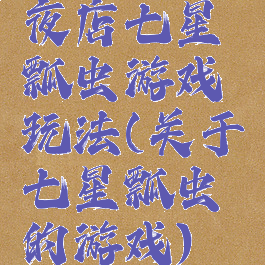 夜店七星
瓢虫游戏
玩法(关于
七星瓢虫
的游戏)